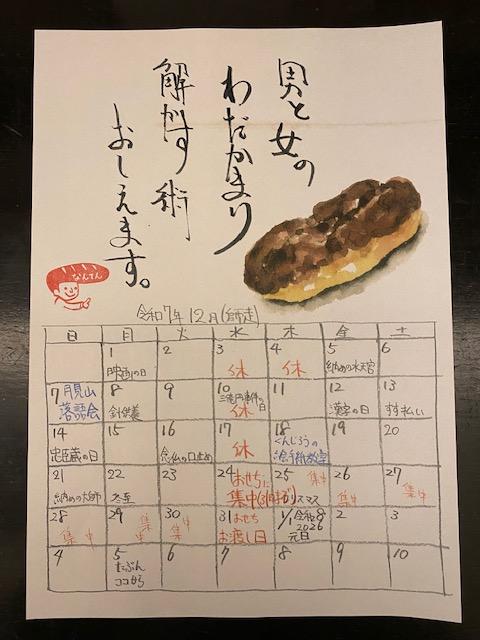 男と女の
わだかまり
解かす術
おしえます。
なんてん
令和7年12月(師走)
日 月 火 水 木 金 土
1 2 3 4 5 6
映画の日 休 休 納めの水天宮
7 月見山 8 9 10 11 12 13
落語会 針供養 三億円事件の日 休 漢字の日 すす払い
14 15 16 17 18 19 20
忠臣蔵の日 念仏の口止め 休 くんじろうの
絵手紙教室
21 22 23 24 おせちに 25 集中 26 27
納めの大師 冬至 集中 クリスマス 集中 集中
28 29 30 31 おせち 1/1 令和8 2 3
2026
集中 集中 集中 お渡し日 元日
4 5 6 7 8 9 10
たぶん
ココから